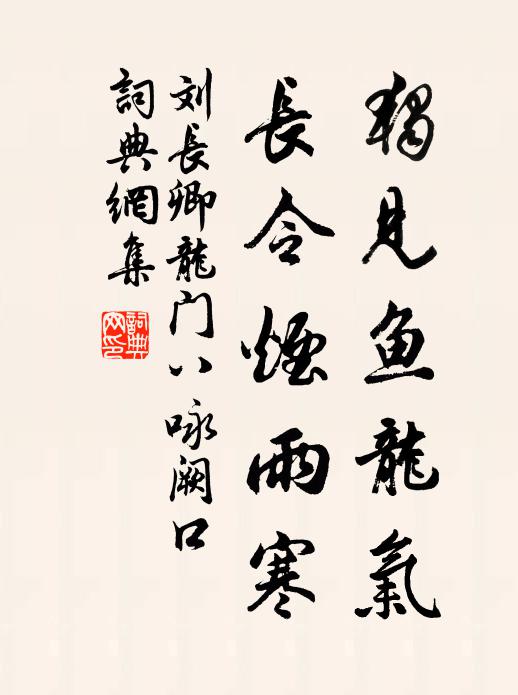 獨見魚龍氣
長令煙雨寒
刘長卿龍门八咏阙口
詞典網集
詞典網印